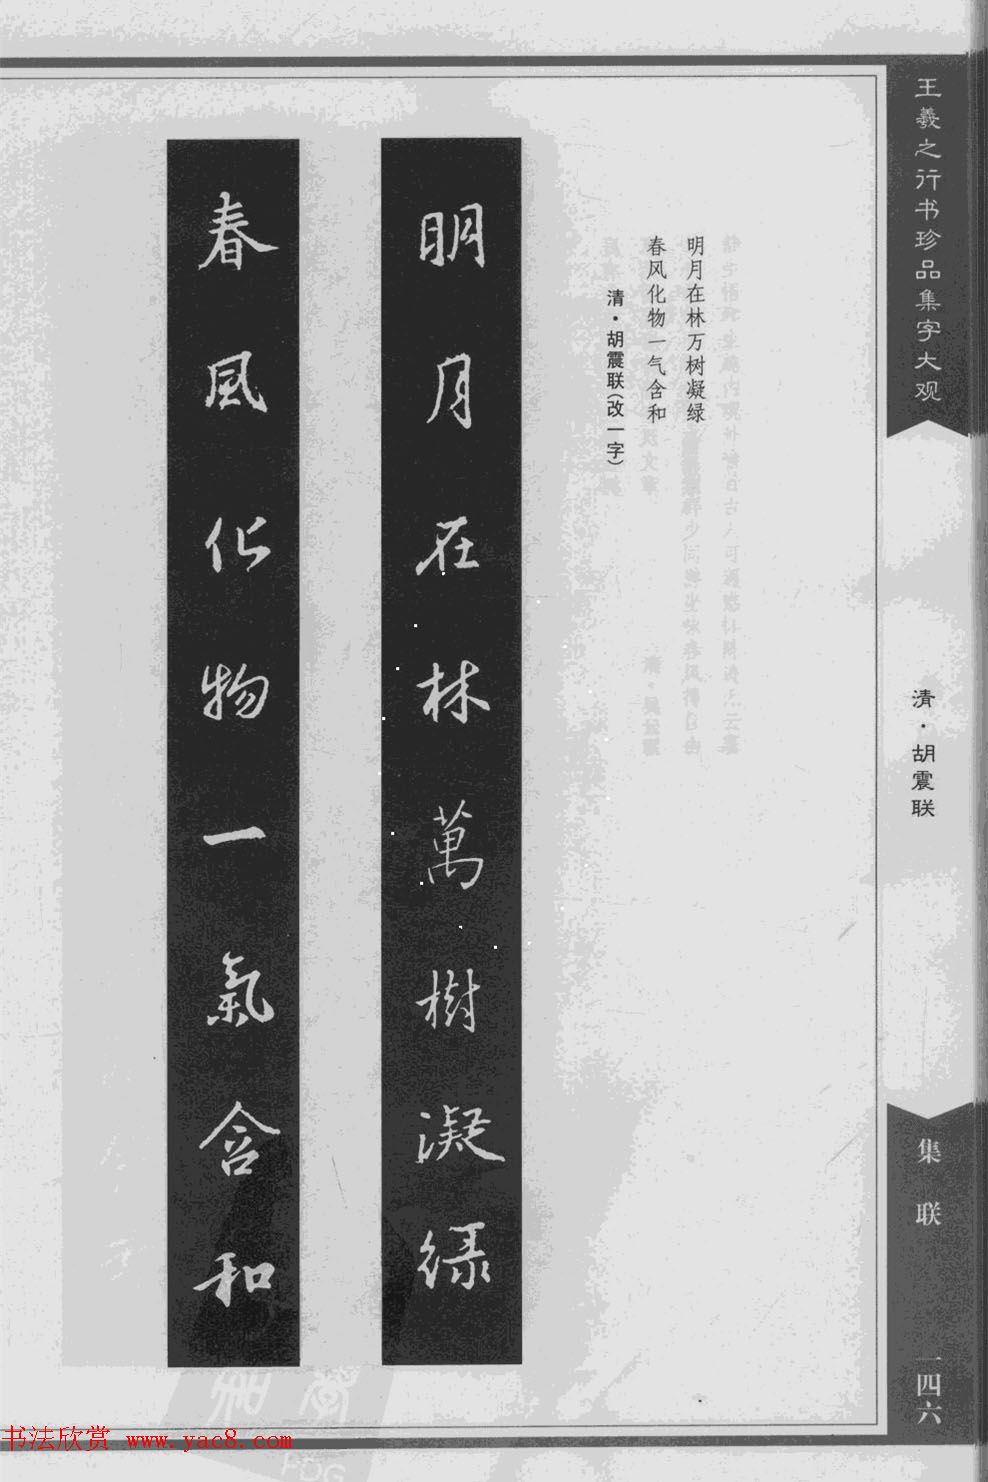 王羲之行书珍品集字大观
清·胡震联
集联
一四六
明月在林万树凝绿
春风化物一气含和
清·胡震联(改一字)
明月在林萬樹凝綠
春風化物一氣含和
书法欣赏 www.yac8.com
PDG